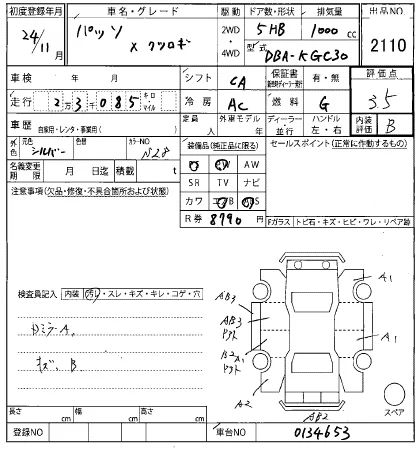 初度登録年月 車名・グレード 駆動 ドア数・形状 排気量 出品NO
24/11月 パッソ 2WD・4WD 5HB 1000cc 2110
X クツロギ 型式 DBA-KGC30
車検 年 月 シフト CA 保証書 有・無 評価点
走行 2万3千085 キロ・マイル 冷房 AC 燃料 G 3.5
車歴 自家用・レンタ・事業用( ) 定員 人 外車モデル 年 ディーラー・並行 ハンドル 左・右 内装評価 B
外色 元色 シルバー 色替 カラーNO N28 装備品(純正品に限る) セールスポイント(正常に作動するもの)
名義変更期限 月 日迄 積載 t PS PW AW
SR TV ナビ
注意事項(欠品・修復・不具合箇所および状態) カワ エアB ABS
R券 8790円
Fガラス トビ石・キズ・ヒビ・ワレ・リペア跡
検査員記入 内装 汚れ・スレ・キズ・キレ・コゲ・穴
Dミラー A1
キズ、B
A1
AB3
AB3
ドアクト
B2A1
ドアクト
A1
A2
AB2
スペア
長さ cm 幅 cm 高さ cm
登録NO 車台NO 0134653